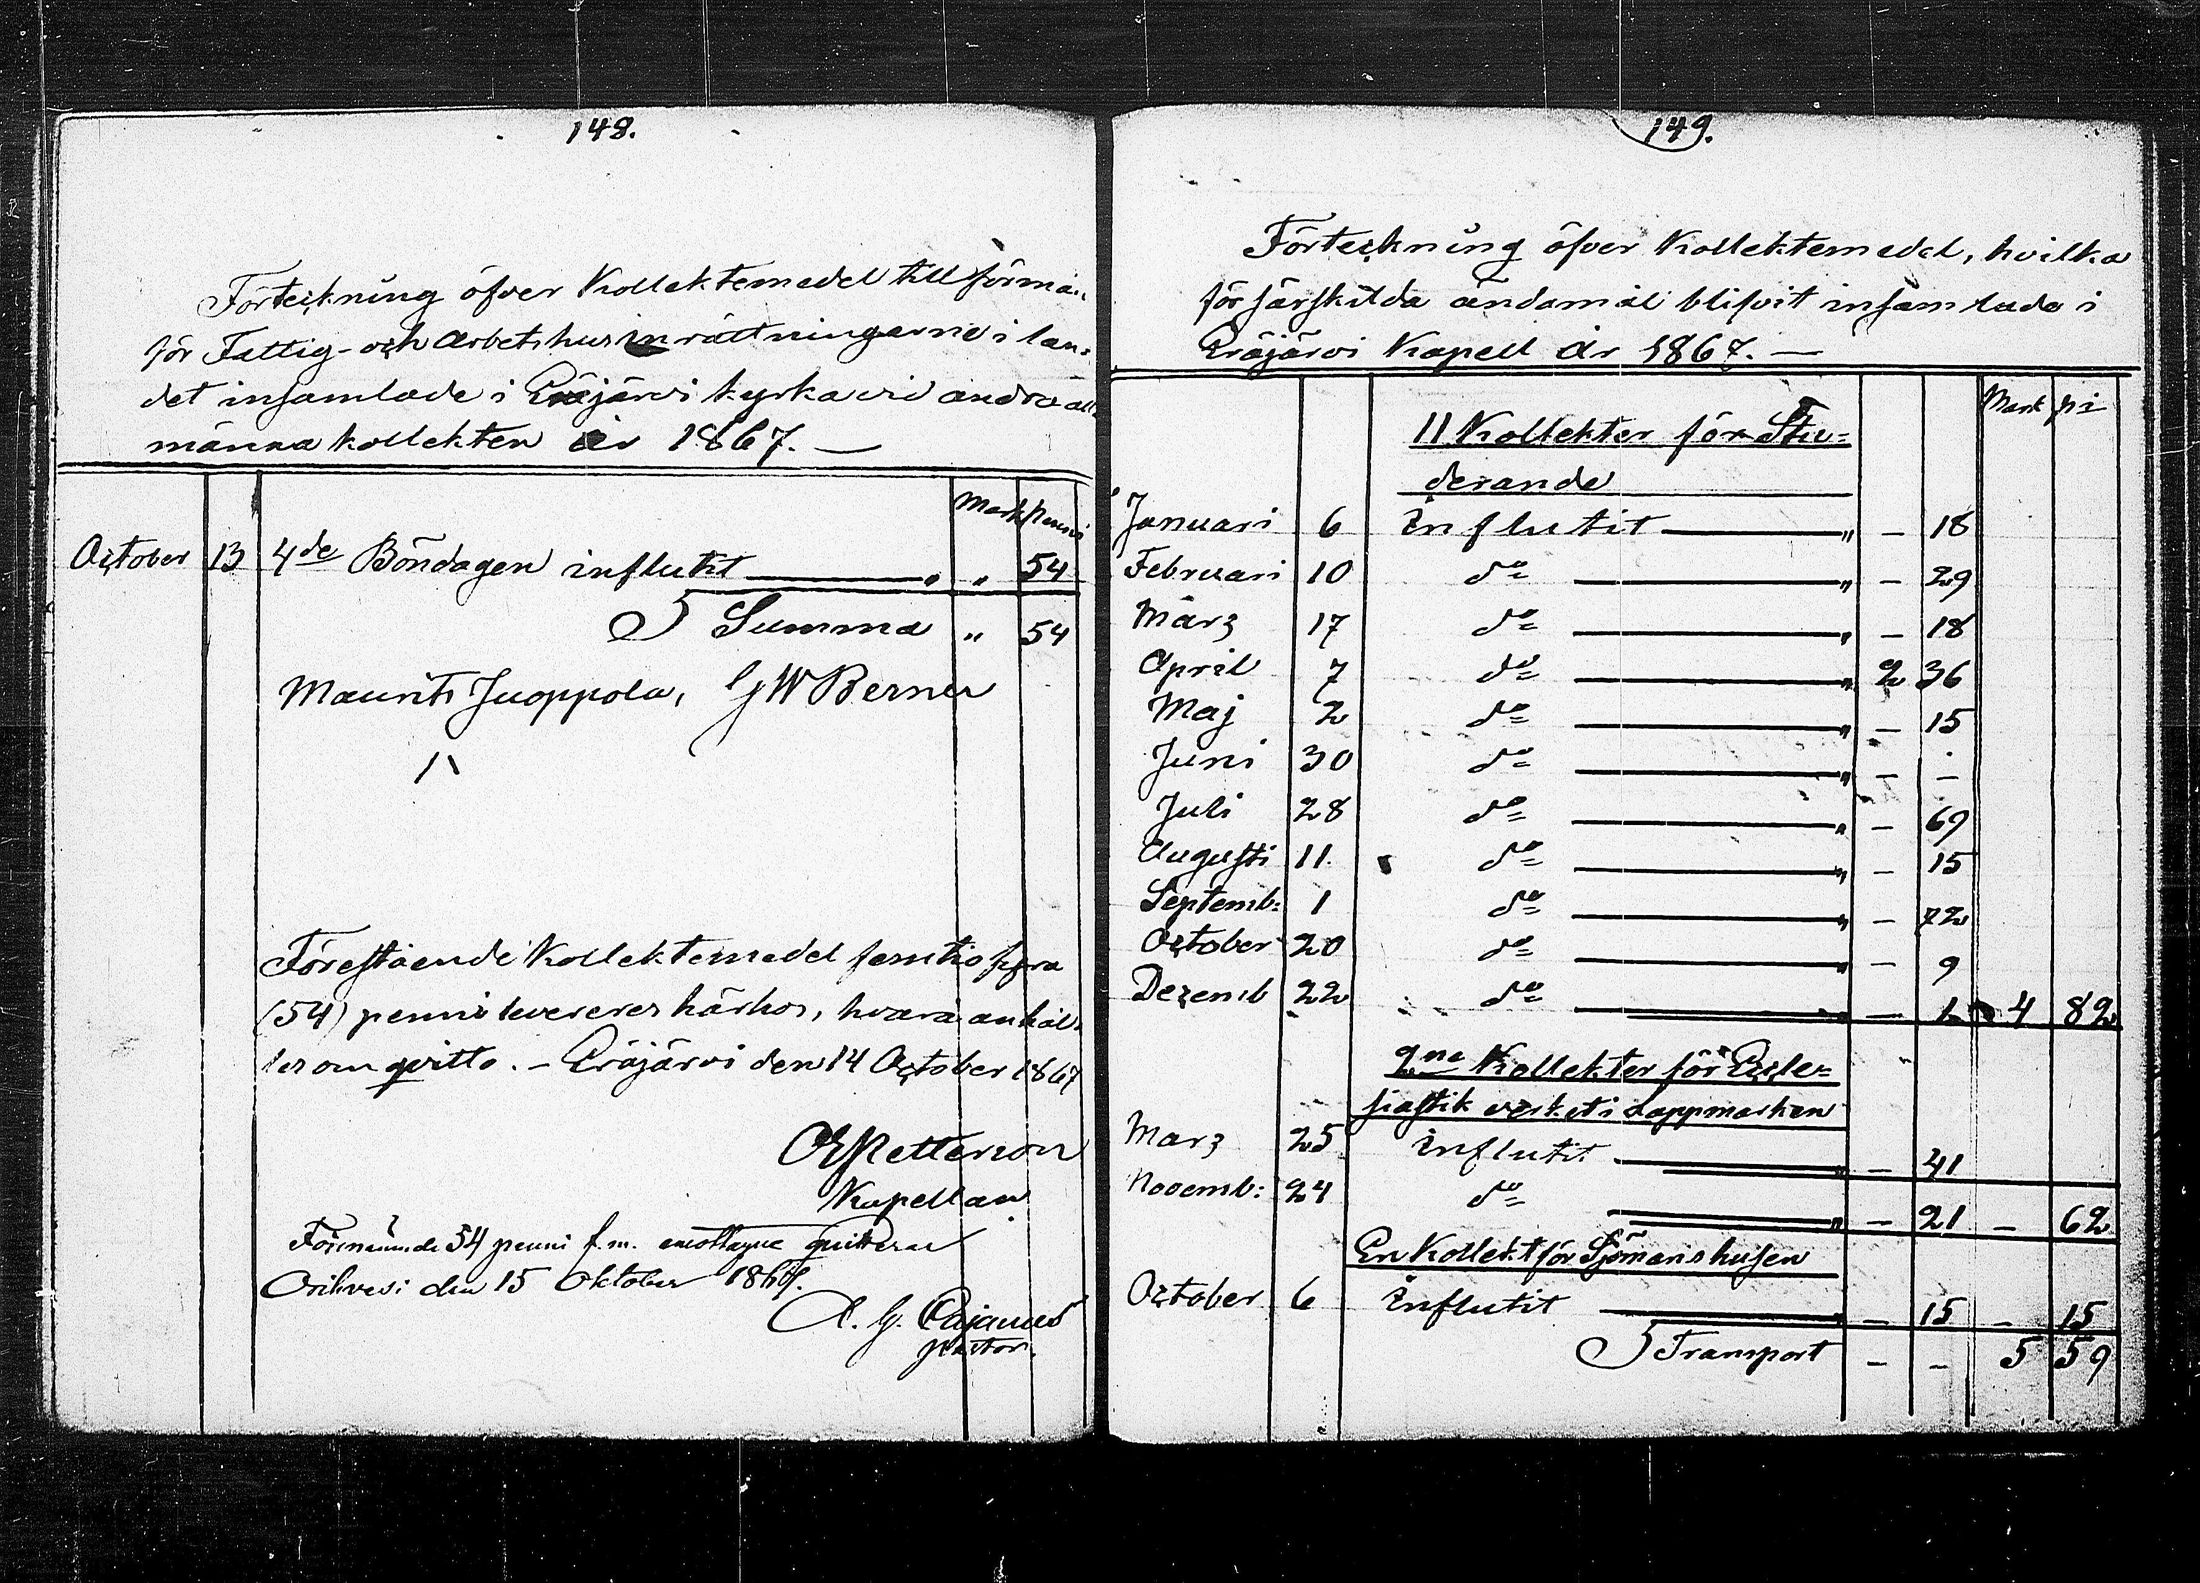 148.
Förteckning öfver Kollektemedel till förmån
för Fattig- och Arbetshusinrättningarne i lan-
det insamlade i Eräjärvi kyrka vid andra all-
männa kollekten år 1867. —
Mark penni
October 13 4de Böndagen influtit — " " 54
Summa " 54
Maurits Juoppola, GW Berner
Förestående Kollektemedel femtio fyra
(54) penni levereres härhos, hvarå anhål-
les om qvitto. – Eräjärvi den 14 October 1867
Petterson
Kapellan
Förenämnde 54 penni f. m. emottagne quitteras
Orihvesi den 15 Oktober 1867.
A. G. Cajanus
pastor.
149.
Förteckning öfver Kollektemedel, hvilka
för särskilda ändamål blifvit insamlade i
Eräjärvi Kapell år 1867. —
Mark pi
11 Kollekter för Stu-
derande
Januari 6 Influtit — " – 18
Februari 10 do — " – 29
März 17 do — " – 18
April 7 do — " 2 36
Maj 2 do — " – 15
Juni 30 do — " – –
Juli 28 do — " – 69
Augusti 11. do — " – 15
Septemb: 1 do — " – 72
October 20 do — " – 9
Dezemb 22 do — " – 1 4 82
2ne Kollekter för Eccle-
siastik verket i Lappmarken
Marz 25 Influtit — " – 41
Novemb: 24 do — " – 21 – 62
En Kollekt för Sjömanshusen
October 6 Influtit — " – 15 – 15
Transport – – 5 59